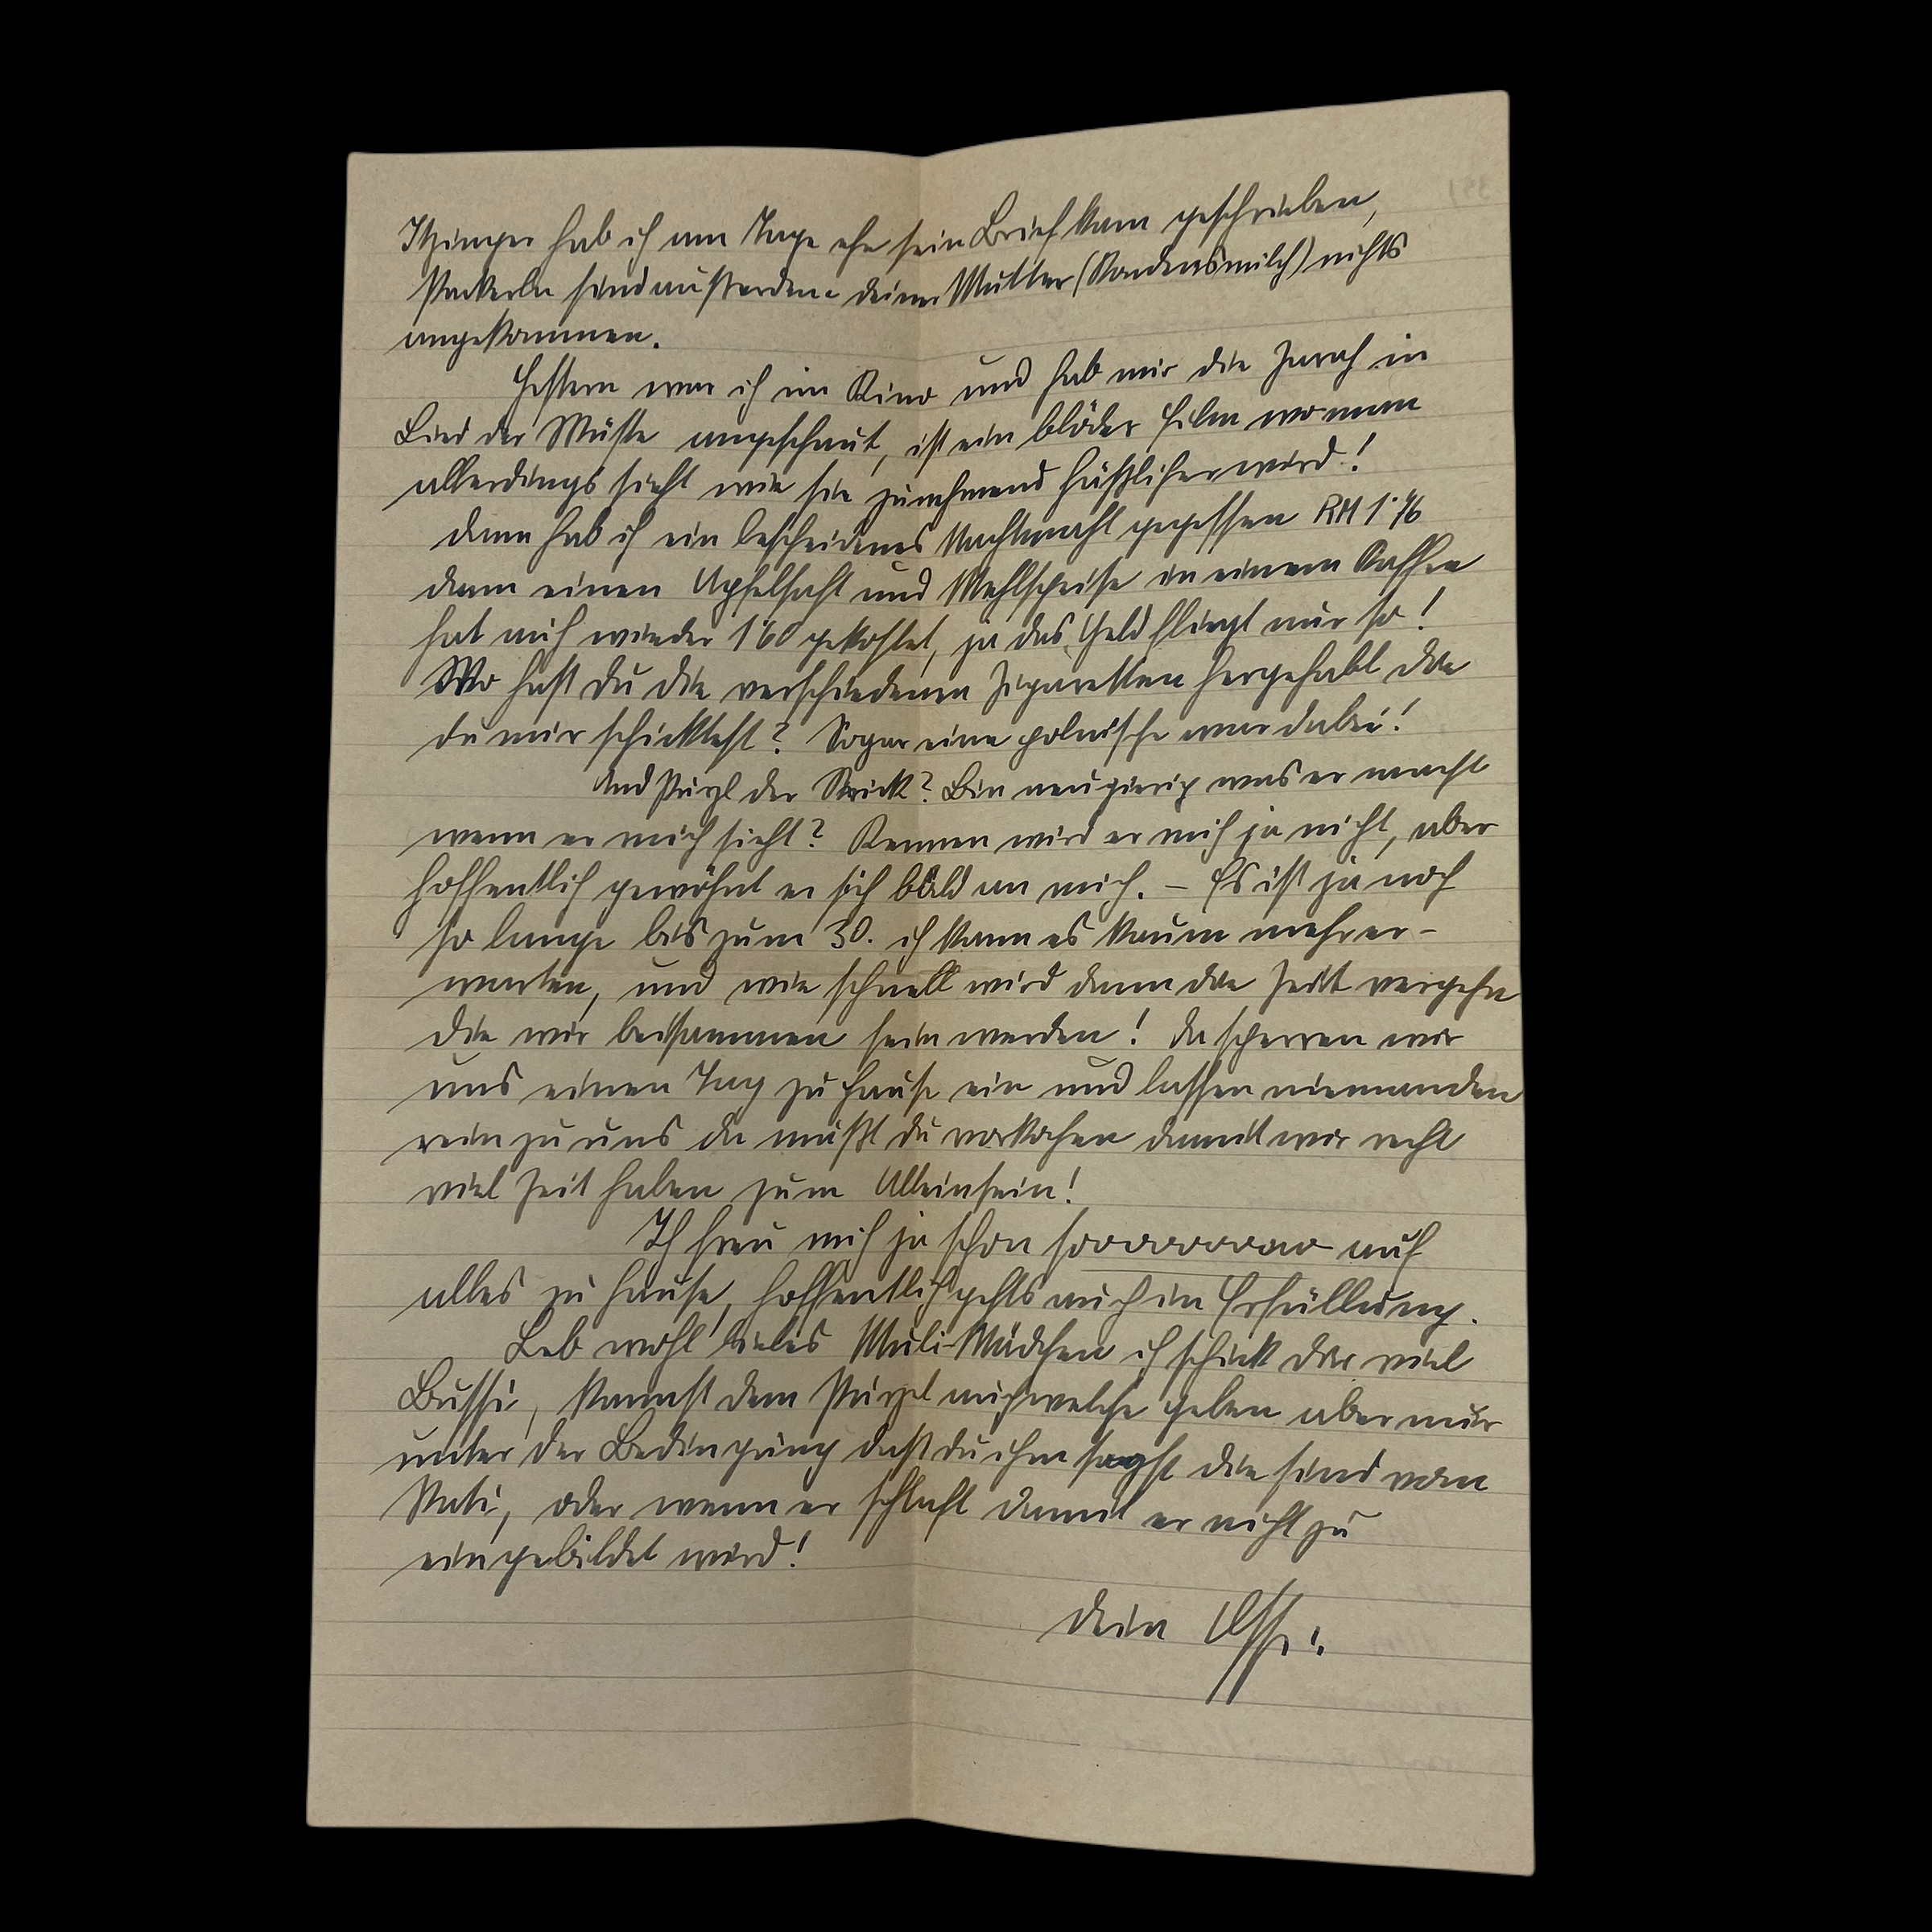 Itzinger hab ich am Tage ehe sein Brief kam geschrieben,
Packerln sind außer den deiner Mutter (Kondensmilch) nichts
angekommen.
Gestern war ich im Kino und hab mir die Zarah in
Lied der Wüste angeschaut, ist ein blöder Film wo man
allerdings sieht wie sie zunehmend häßlicher wird!
dann hab ich ein bescheidenes Nachtmahl gegessen RM 1·76
dann einen Apfelsaft und Mehlspeise in einem Kaffee
hat auch wieder 1'60 gekostet, ja das Geld fliegt nur so!
Wo hast du die verschiedenen Zigaretten hergehabt die
du mir schicktest? Sogar eine polnische war dabei!
Und Purzl der Strick? Bin neugierig was er macht
wenn er mich sieht? Kennen wird er mich ja nicht, aber
hoffentlich gewöhnt er sich bald an mich. – Es ist ja noch
so lange bis zum 30. ich kann es kaum mehr er-
warten, und wie schnell wird dann die Zeit vergehn
die wir beisammen sein werden! da sperren wir
uns einen Tag zu hause ein und lassen niemanden
rein zu uns da mußt du vorkochen damit wir recht
viel Zeit haben zum Alleinsein!
Ich freu mich ja schon sooooooooo auf
alles zu hause, hoffentlich gehts auch in Erfüllung.
Leb wohl liebes Muli-Mädchen ich schick dir viel
Bussi, kannst dem Purzel auch welche geben aber nur
unter der Bedingung daß du ihm sagst die sind vom
Vati, oder wenn er schlaft damit er nicht zu
eingebildet wird!
dein Ossi.